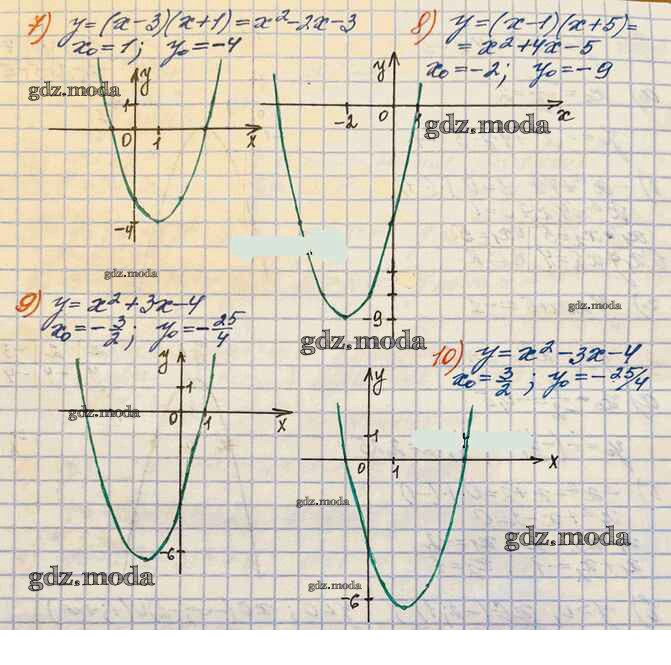 7) y=(x-3)(x+1)=x²-2x-3
x₀=1; y₀=-4
gdz.moda
y
1
0 1 x
-4
gdz.moda
8) y=(x-1)(x+5)=
=x²+4x-5
x₀=-2; y₀=-9
y
-2 0 1 x
gdz.moda
-9
gdz.moda
gdz.moda
9) y=x²+3x-4
x₀=-3/2; y₀=-25/4
y
1
gdz.moda
0 1 x
-6
gdz.moda
10) y=x²-3x-4
x₀=3/2; y₀=-25/4
y
1
0 1 x
gdz.moda
gdz.moda
gdz.moda
-6